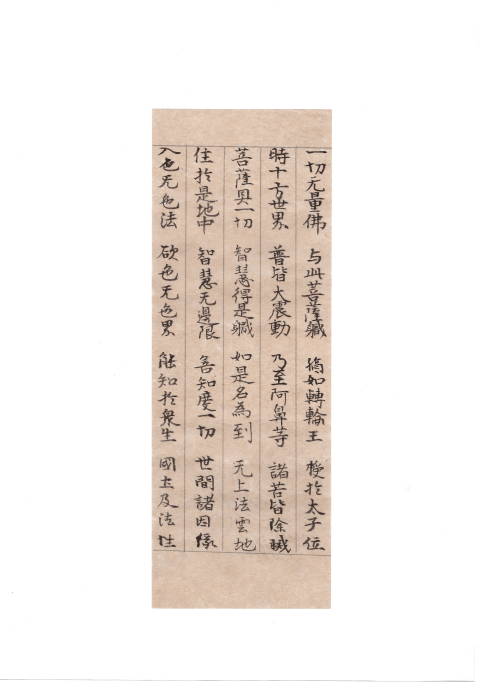 一切无量佛 与此菩薩軄 猶如轉輪王 授扵太子位
時十方世界 普皆大震動 乃至阿鼻等 諸苦皆除滅
菩薩具一切 智慧得是軄 如是名為到 无上法雲地
住扵是地中 智慧无邊限 善知度一切 世間諸因緣
入色无色法 欲色无色界 能知扵衆生 國土及法性